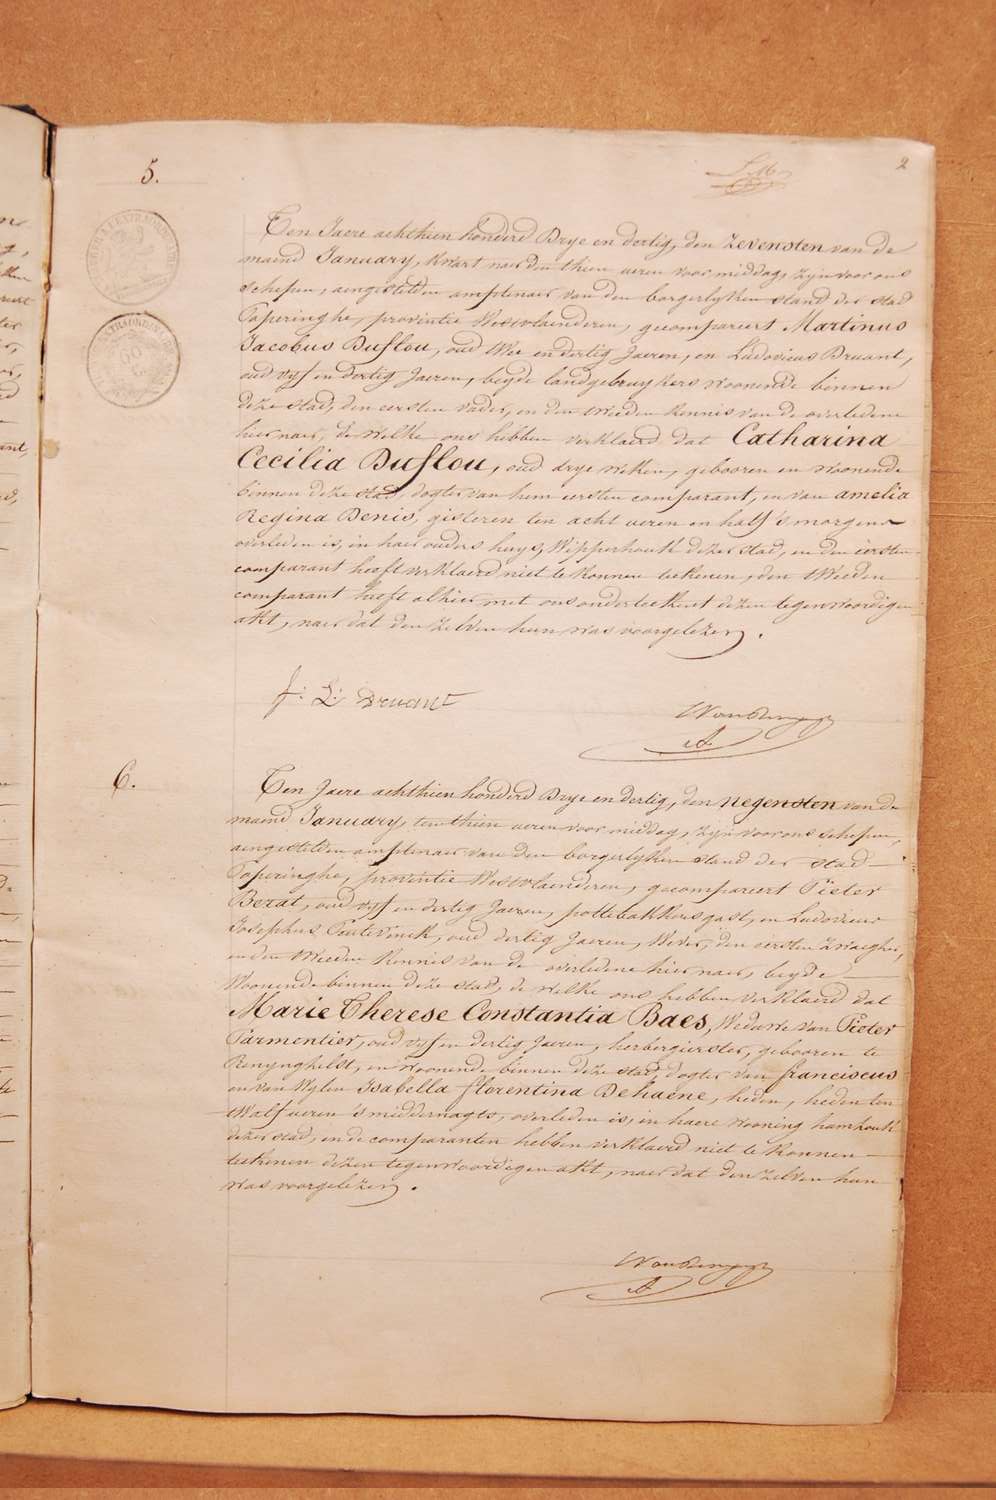 5.
2
Ten Jaere achthien honderd Drye en dertig, den zevensten van de
maend January, kwart naer den thien ueren voor middag, zyn voor ons
schepen, aengestelden amptenaer van den borgerlyken stand der stad
Poperinghe, provintie Westvlaenderen, gecompareert Martinus
Jacobus Duflou, oud twee en dertig Jaeren, en Ludovicus Druant,
oud vyf en dertig Jaeren, beyde landgebruykers woonende binnen
deze stad, den eersten vader, en den tweeden kennis van de overledene
hier naer, de welke ons hebben verklaerd dat Catharina
Cecilia Duflou, oud drye weken, gebooren en woonende
binnen deze stad, dogter van hem eersten comparant, en van amelia
Regina Denis, gisteren ten acht ueren en half 's morgens
overleden is, in haer ouders huys, Wipperhoek dezer stad, en den eersten
comparant heeft verklaerd niet te konnen teekenen, den tweeden
comparant heeft alhier met ons onderteekent dezen tegenwoordigen
akt, naer dat den zelven hun was voorgelezen.
J: L: Druant
6.
Ten Jaere achthien honderd Drye en dertig, den negensten van de
maend January, ten thien ueren voor middag, zyn voor ons schepen,
aengestelden amptenaer van den borgerlyken stand der stad
Poperinghe, provintie Westvlaenderen, gecompareert Pieter
Berat, oud vyf en dertig Jaeren, pottebakkersgast, en Ludovicus
Josephus, oud dertig Jaeren, Wever, den eersten zwaegher,
en den tweeden kennis van de overledene hier naer, beyde
Woonende binnen deze stad, de welke ons hebben verklaerd dat
Marie Therese Constantia Baes, Weduwe van Pieter
Parmentier, oud vyf en dertig Jaeren, herbergierster, gebooren te
Renynghelst, en woonende binnen deze stad, dogter van franciscus
en van Wylen Isabella florentina Dehaene, heden, heden ten
twalf ueren 's middernagts, overleden is, in haere wooning hamhoek
dezer stad, en de comparanten hebben verklaerd niet te konnen
teekenen dezen tegenwoordigen akt, naer dat den zelven hun
was voorgelezen.